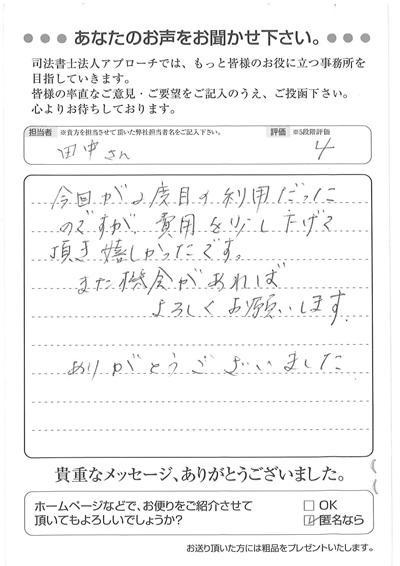 あなたのお声をお聞かせ下さい。
司法書士法人アプローチでは、もっと皆様のお役に立つ事務所を
目指していきます。
皆様の率直なご意見・ご要望をご記入のうえ、ご投函下さい。
心よりお待ちしております。
担当者 ※貴方を担当させて頂いた弊社担当者名をご記入下さい。 評価 ※5段階評価
田中さん 4
今回が2度目の利用だった
のですが、費用を少し下げて
頂き嬉しかったです。
また機会があれば
よろしくお願いします
ありがとうございました
貴重なメッセージ、ありがとうございました。
ホームページなどで、お便りをご紹介させて
頂いてもよろしいでしょうか?
□ OK
☑ 匿名なら
お送り頂いた方には粗品をプレゼントいたします。